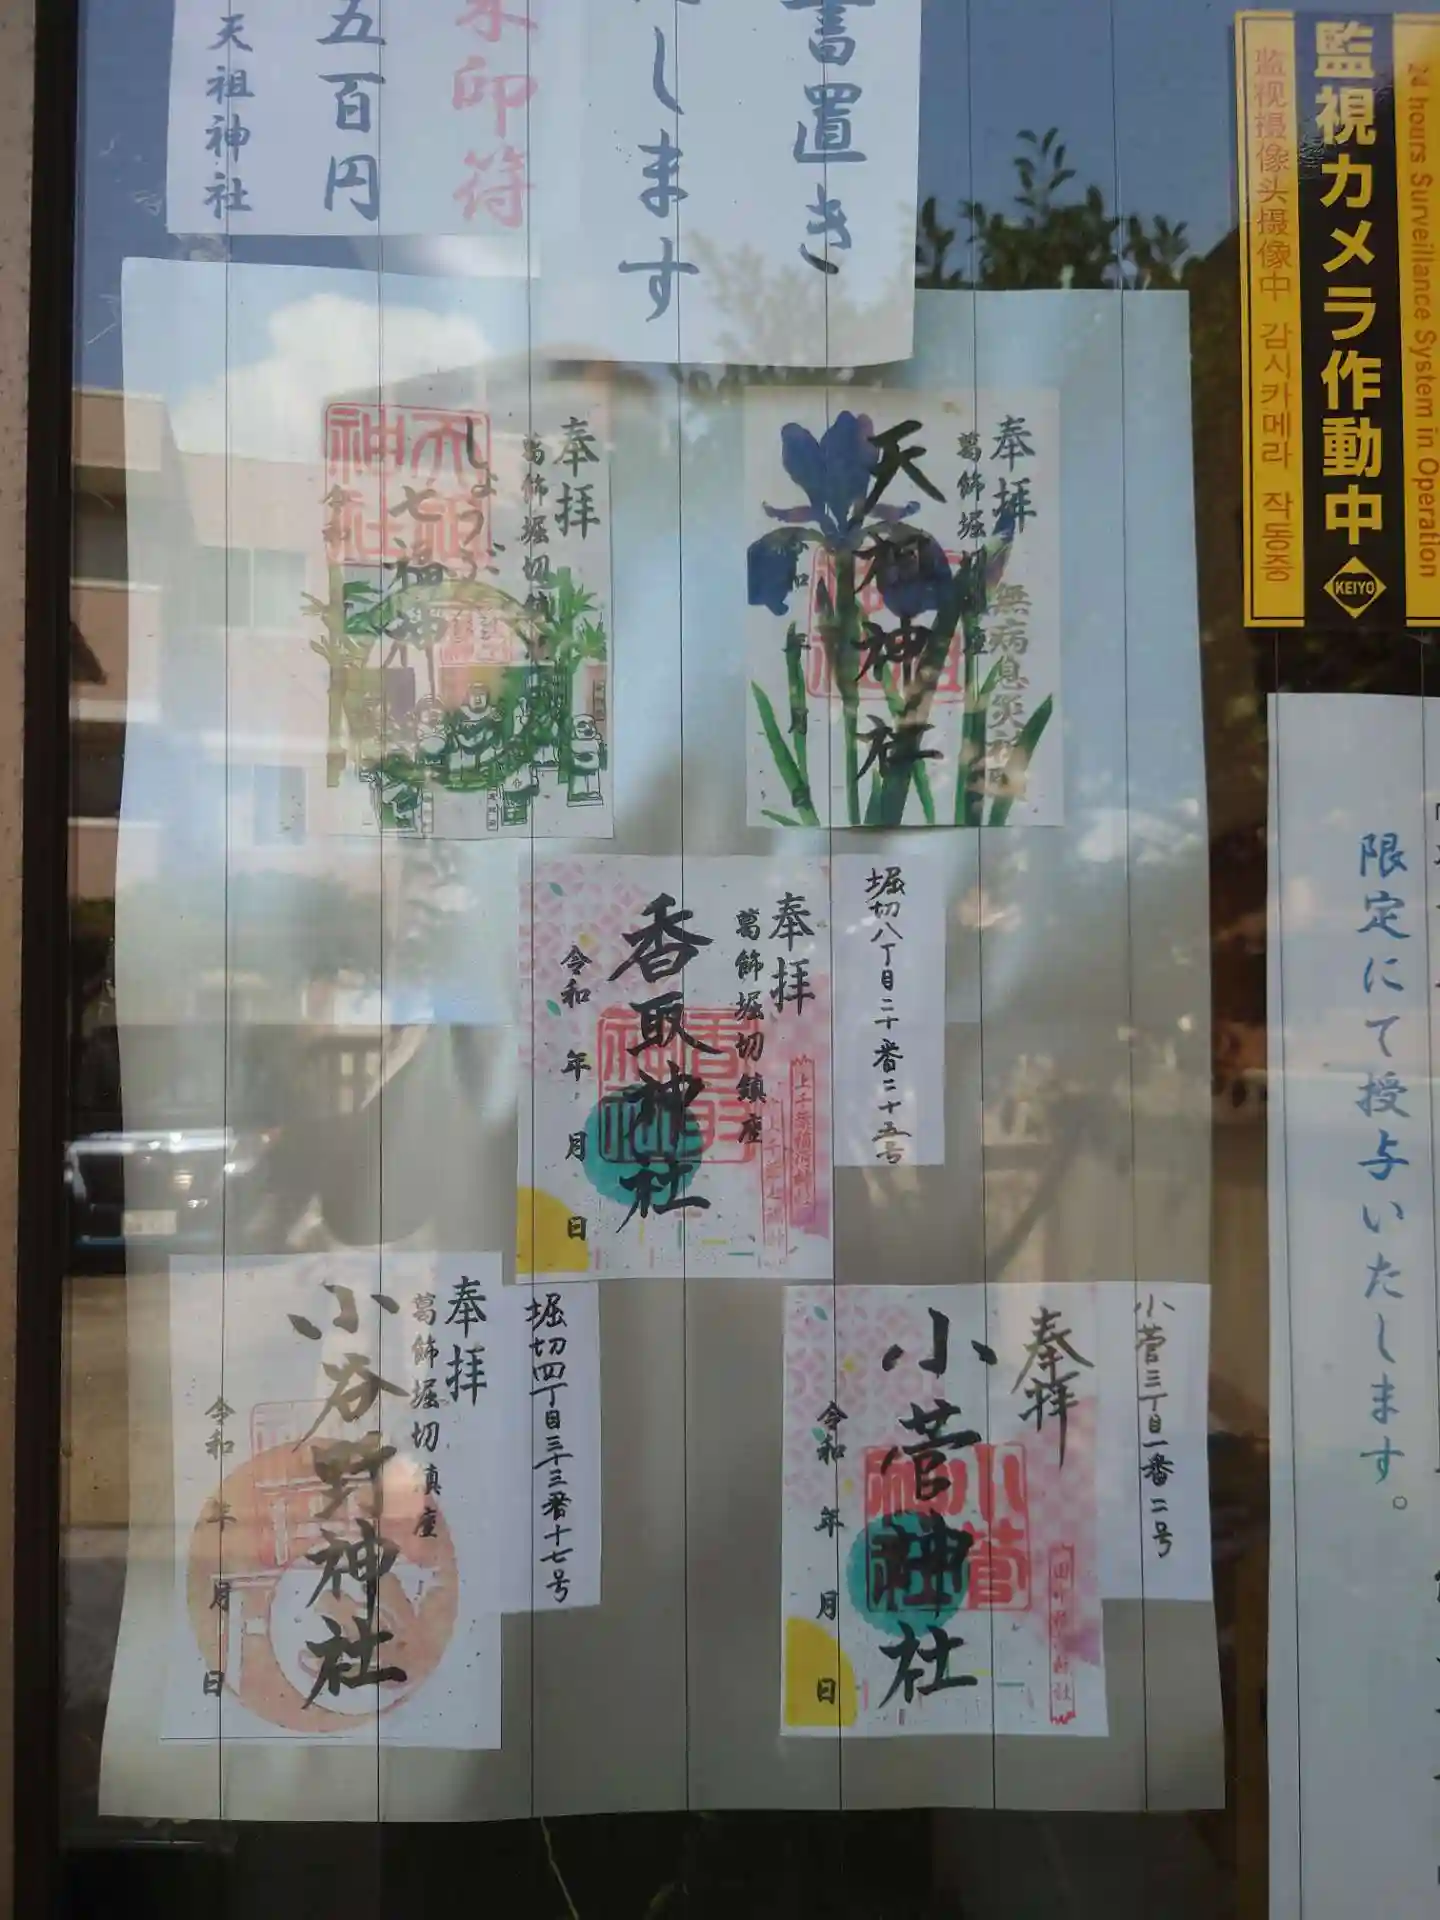 書置き
たします
朱印符
五百円
天祖神社
24 hours Surveillance System in Operation
監視カメラ作動中
KEIYO
监视摄像头摄像中 감시카메라 작동중
奉拝
葛飾堀切鎮座
無病息災
天祖神社
令和 年 月 日
奉拝
葛飾堀切鎮座
しょうぶ
七福神
天祖神社
令和
堀切八丁目二十番二十五号
奉拝
葛飾堀切鎮座
香取神社
令和 年 月 日
小菅三丁目一番二号
奉拝
小菅神社
小菅神社
令和 年 月 日
堀切四丁目三十三番十七号
奉拝
葛飾堀切鎮座
小谷野神社
令和 年 月 日
限定にて授与いたします。